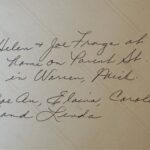 Helen & Joe Frage at
home on Parent St.
in Warren, Mich
Jo An, Elaine, Carole
and Linda